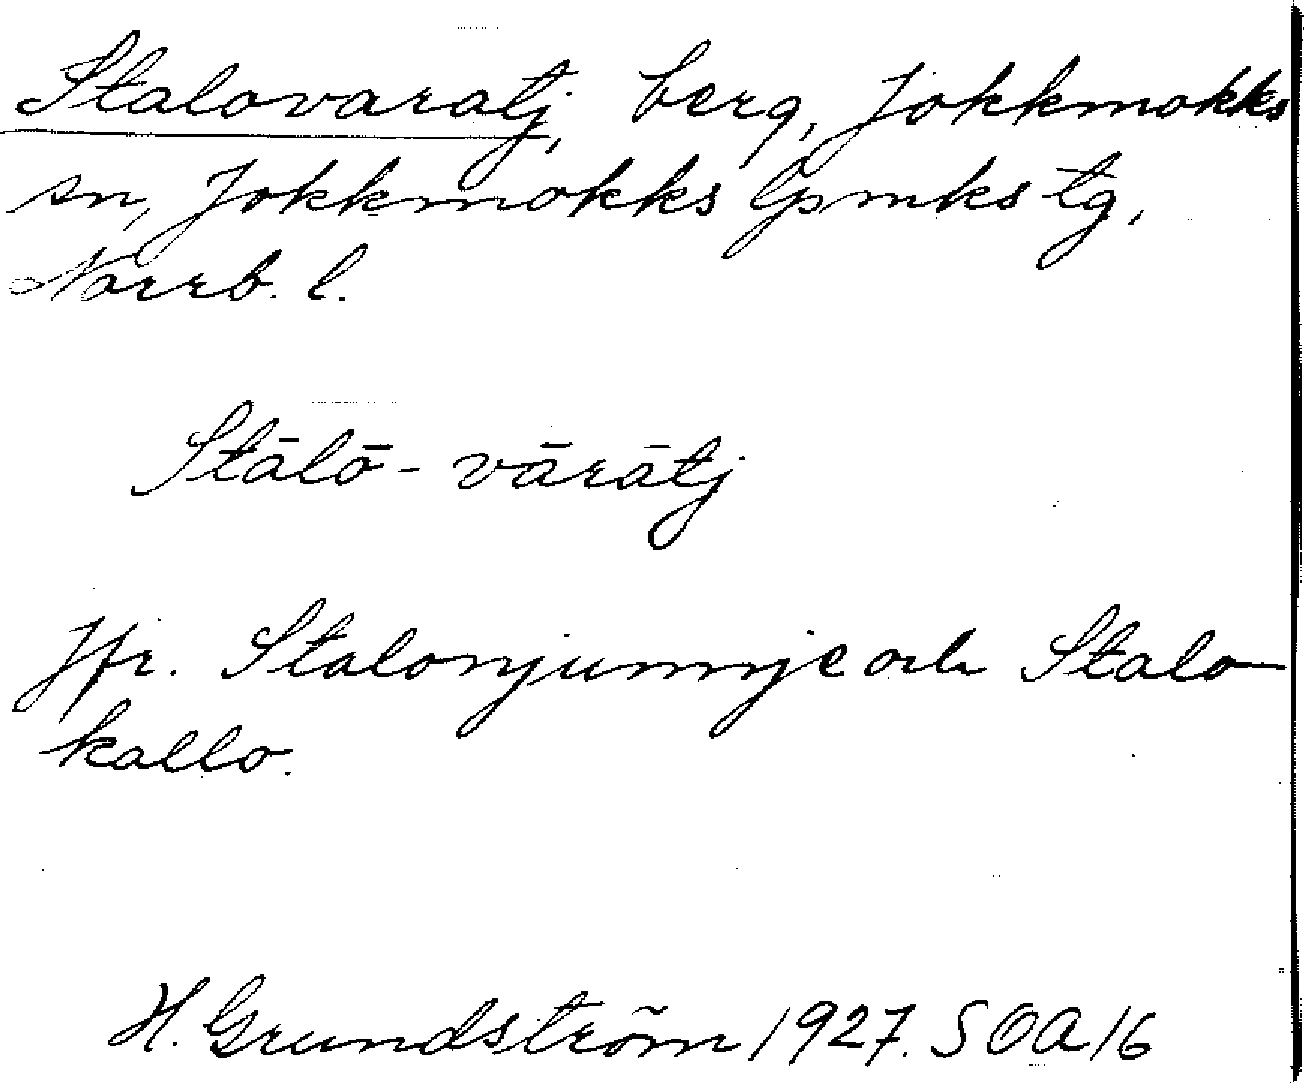 Stalovaratj, berg, Jokkmokks
sn, Jokkmokks lpmks tg,
Norrb. l.
Stālō-vārātj
Jfr. Stalonjunnje och Stalo-
kallo.
H. Grundström 1927. SOA 16